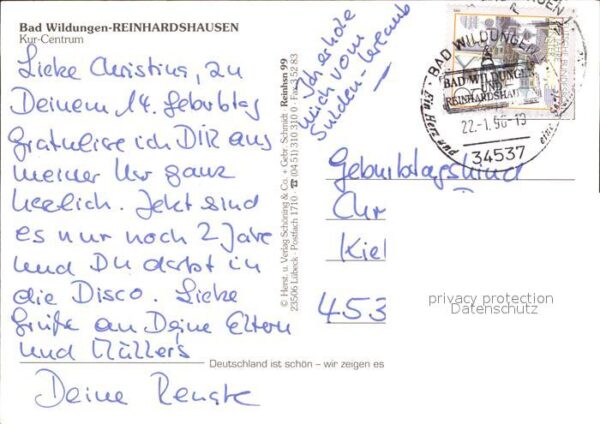 Bad Wildungen-REINHARDSHAUSEN
Kur-Centrum
Liebe Christina, zu
Deinem 14. Geburtstag
gratuliere ich DIR aus
meiner Kur ganz
herzlich. Jetzt sind
es nur noch 2 Jahre
und Du darfst in
die Disco. Liebe
Grüße an Deine Eltern
und Müllers
Deine Renate
Deutschland ist schön – wir zeigen es
© Herst. u. Verlag Schöning & Co. + Gebr. Schmidt · Reinhsn 99
23506 Lübeck · Postfach 1710 · ☎ (04 51) 310 310 · Fax 3 52 83
Ich erhole
mich vom
Süden-Urlaub
BAD WILDUNGEN
BAD WILDUNGEN
UND
REINHARDSHAU
Ein Herz
22.-1.96-19
34537
Geburtstagskind
Chr
Kiel
453
privacy protection
Datenschutz